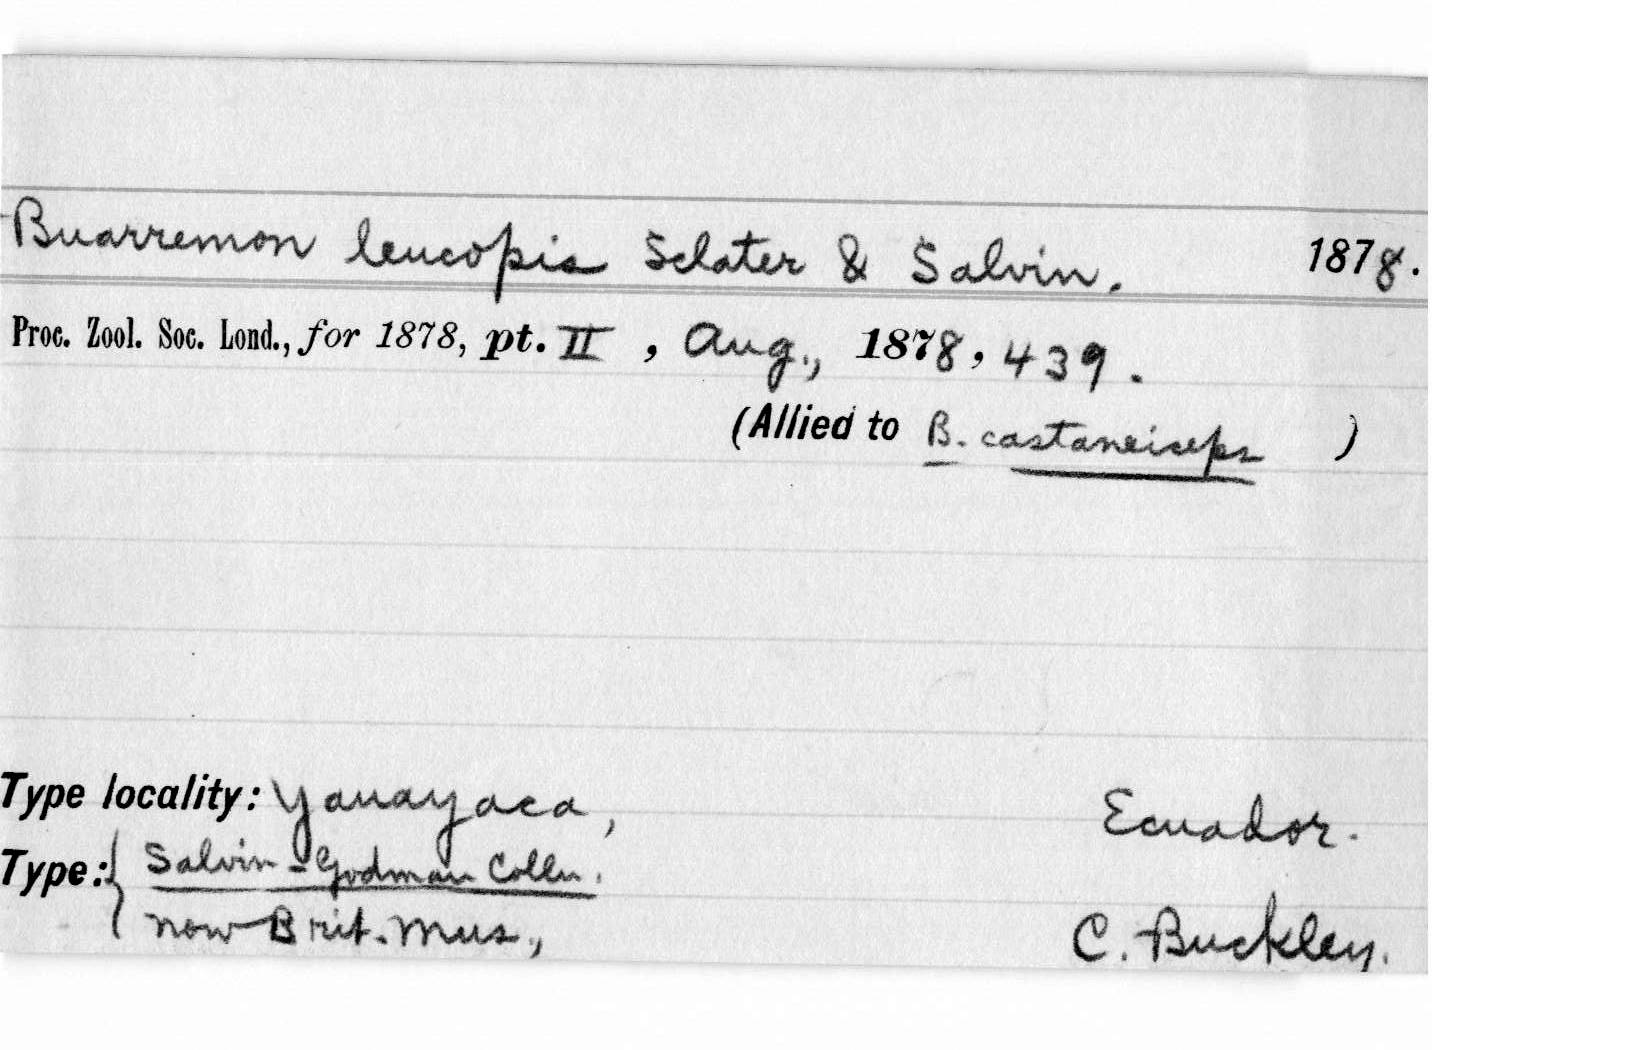 Buarremon leucopis Sclater & Salvin. 1878.
Proc. Zool. Soc. Lond., for 1878, pt. II , Aug., 1878, 439.
(Allied to B. castaneiceps )
Type locality: Yanayaca, Ecuador.
Type: { Salvin-Godman Colln.
now Brit. Mus., C. Buckley.